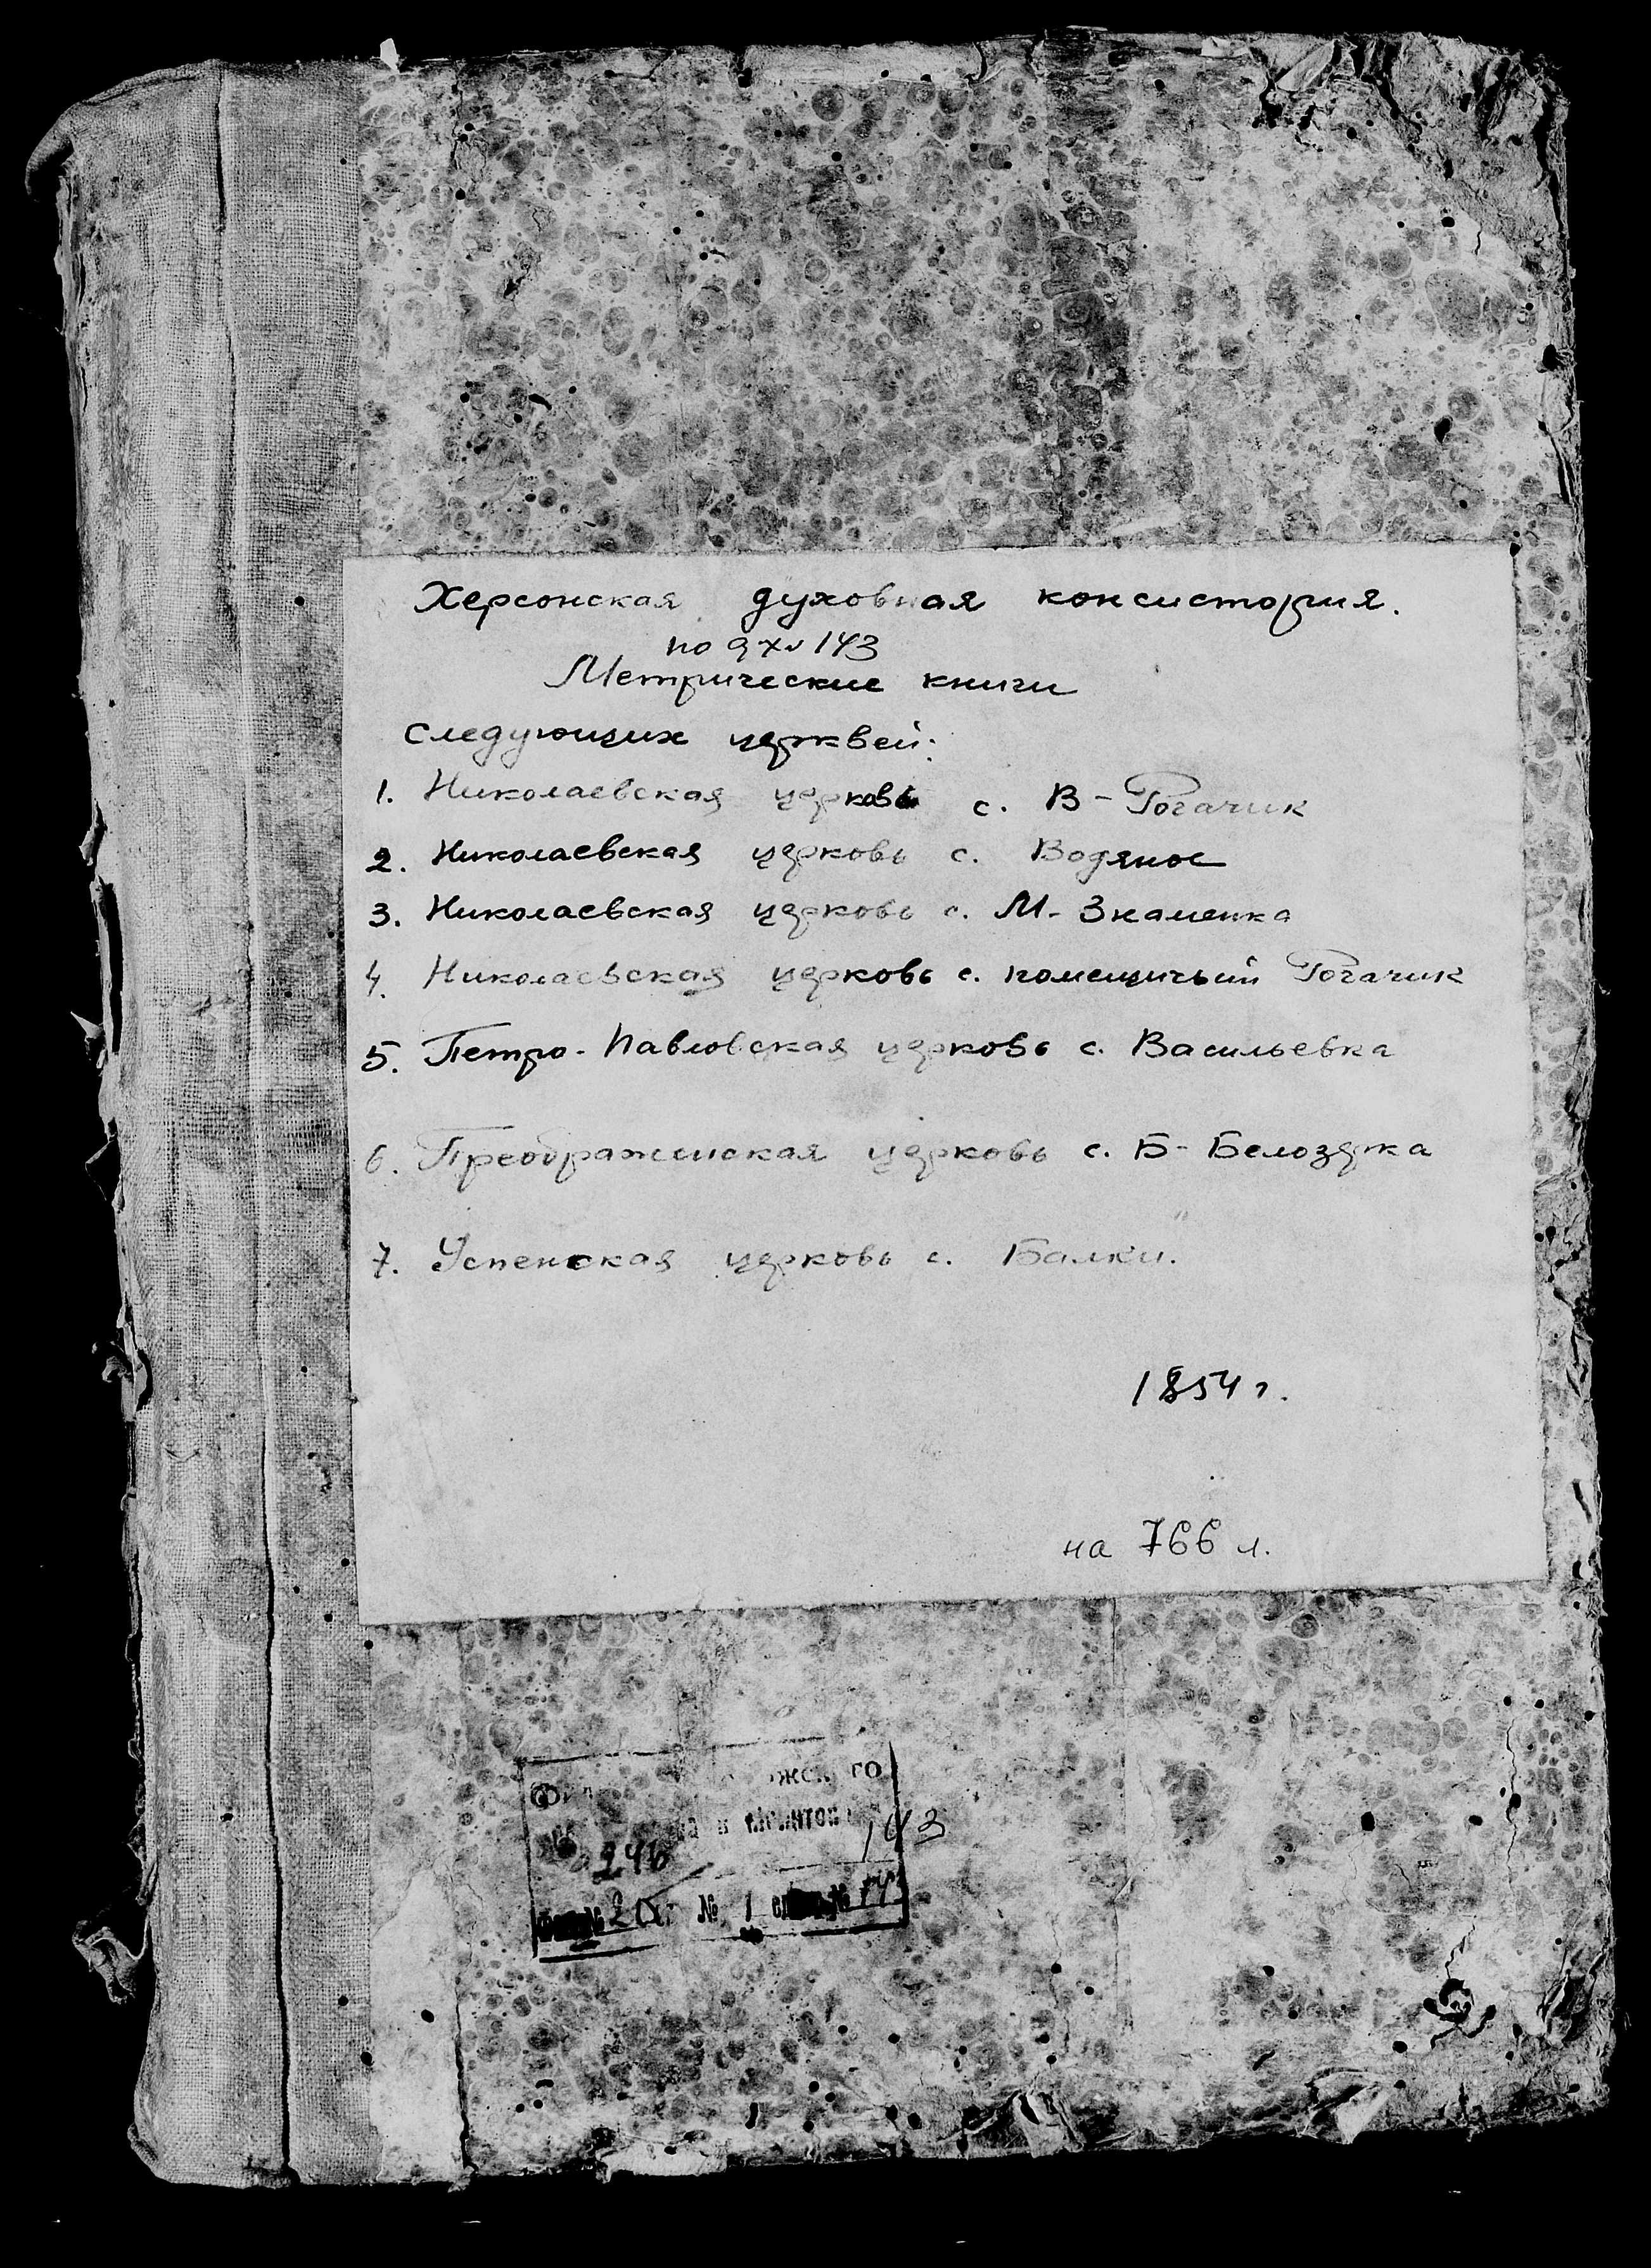 Херсонская духовная консистория.
по 143
Метрические книги
следующих церквей:
1. Николаевская церковь с. В-Рогачик
2. Николаевская церковь с. Водяное
3. Николаевская церковь с. М-Знаменка
4. Николаевская церковь с. помещичьий Рогачик
5. Петро-Павловская церковь с. Васильевка
6. Преображенская церковь с. Б-Белозерка
7. Успенская церковь с. Балки.
1854 г.
на 766 л.
143
№ 1